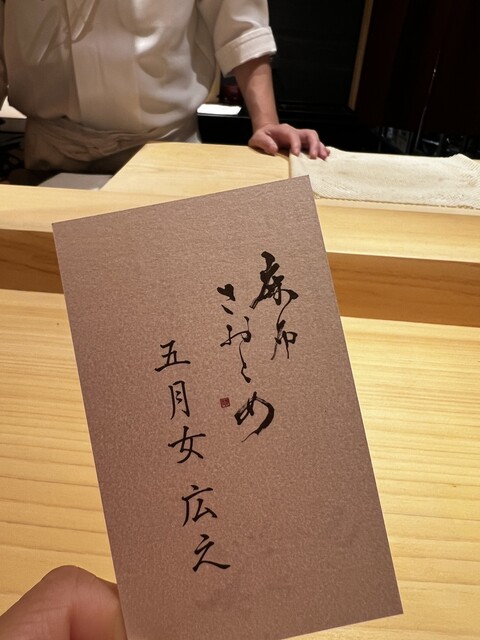 麻布
さおとめ
五月女 広之